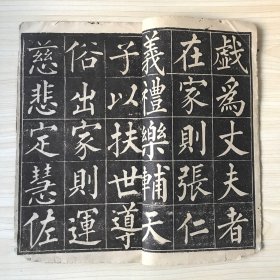 戯爲丈夫者
在家則張仁
義禮樂輔天
子以扶世導
俗出家則運
慈悲定慧佐